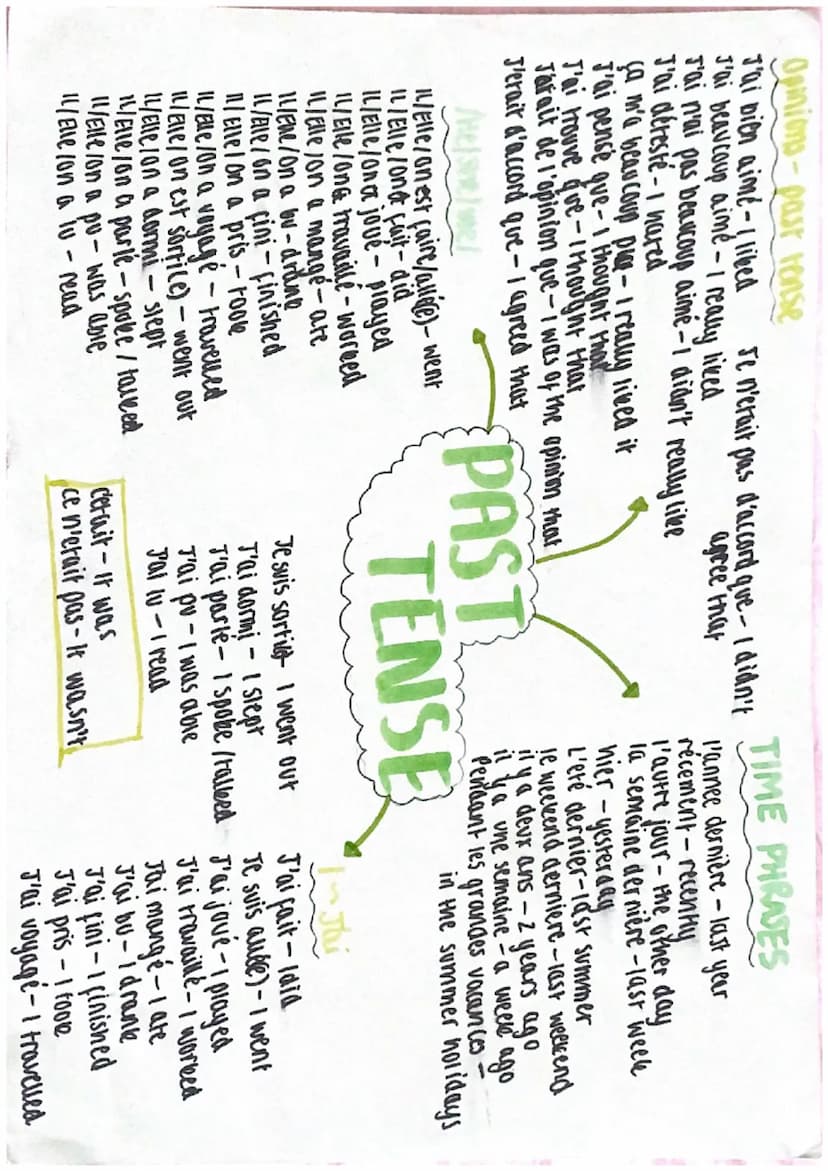 Opinions - past tense
J'ai bien aimé - I liked
J'ai beaucoup aimé - I really liked
J'ai n'ai pas beaucoup aimé - I didn't really like
J'ai détesté - I hated
ça m'a beaucoup plu - I really liked it
J'ai pensé que - I thought that
J'ai trouvé que - I thought that
J'était de l'opinion que - I was of the opinion that
J'était d'accord que - I agreed that
Je n'était pas d'accord que - I didn't
agree that
TIME PHRASES
l'année dernière - last year
récement - recently
l'autre jour - the other day
la semaine dernière - last week
hier - yesterday
L'été dernier - last summer
le weekend derniere - last weekend
il y a deux ans - 2 years ago
il y a une semaine - a week ago
Pendant les grandes vacances -
in the summer holidays
PAST
TENSE
He/she/we/
IL/Elle/on est faire/allé(e) - went
IL/Elle/on a fait - did
IL/Elle/on a joué - played
IL/Elle/on a travaillé - worked
IL/Elle/on a mangé - ate
IL/Elle/on a bu - drank
IL/Elle/on a fini - finished
Il/Elle/on a pris - took
IL/Elle/on a voyagé - travelled
IL/Elle/on est sorti(e) - went out
IL/Elle/on a dormi - slept
IL/Elle/on a parlé - spoke/talked
IL/Elle/on a pu - was able
IL/Elle/on a lu - read
I - J'ai
J'ai fait - I did
Je suis allé(e) - I went
J'ai joué - I played
J'ai travaillé - I worked
J'ai mangé - I ate
J'ai bu - I drank
J'ai fini - I finished
J'ai pris - I took
J'ai voyagé - I travelled
Je suis sorti(e) - I went out
J'ai dormi - I slept
J'ai parlé - I spoke/talked
J'ai pu - I was able
J'ai lu - I read
c'était - It was
ce n'était pas - It wasn't